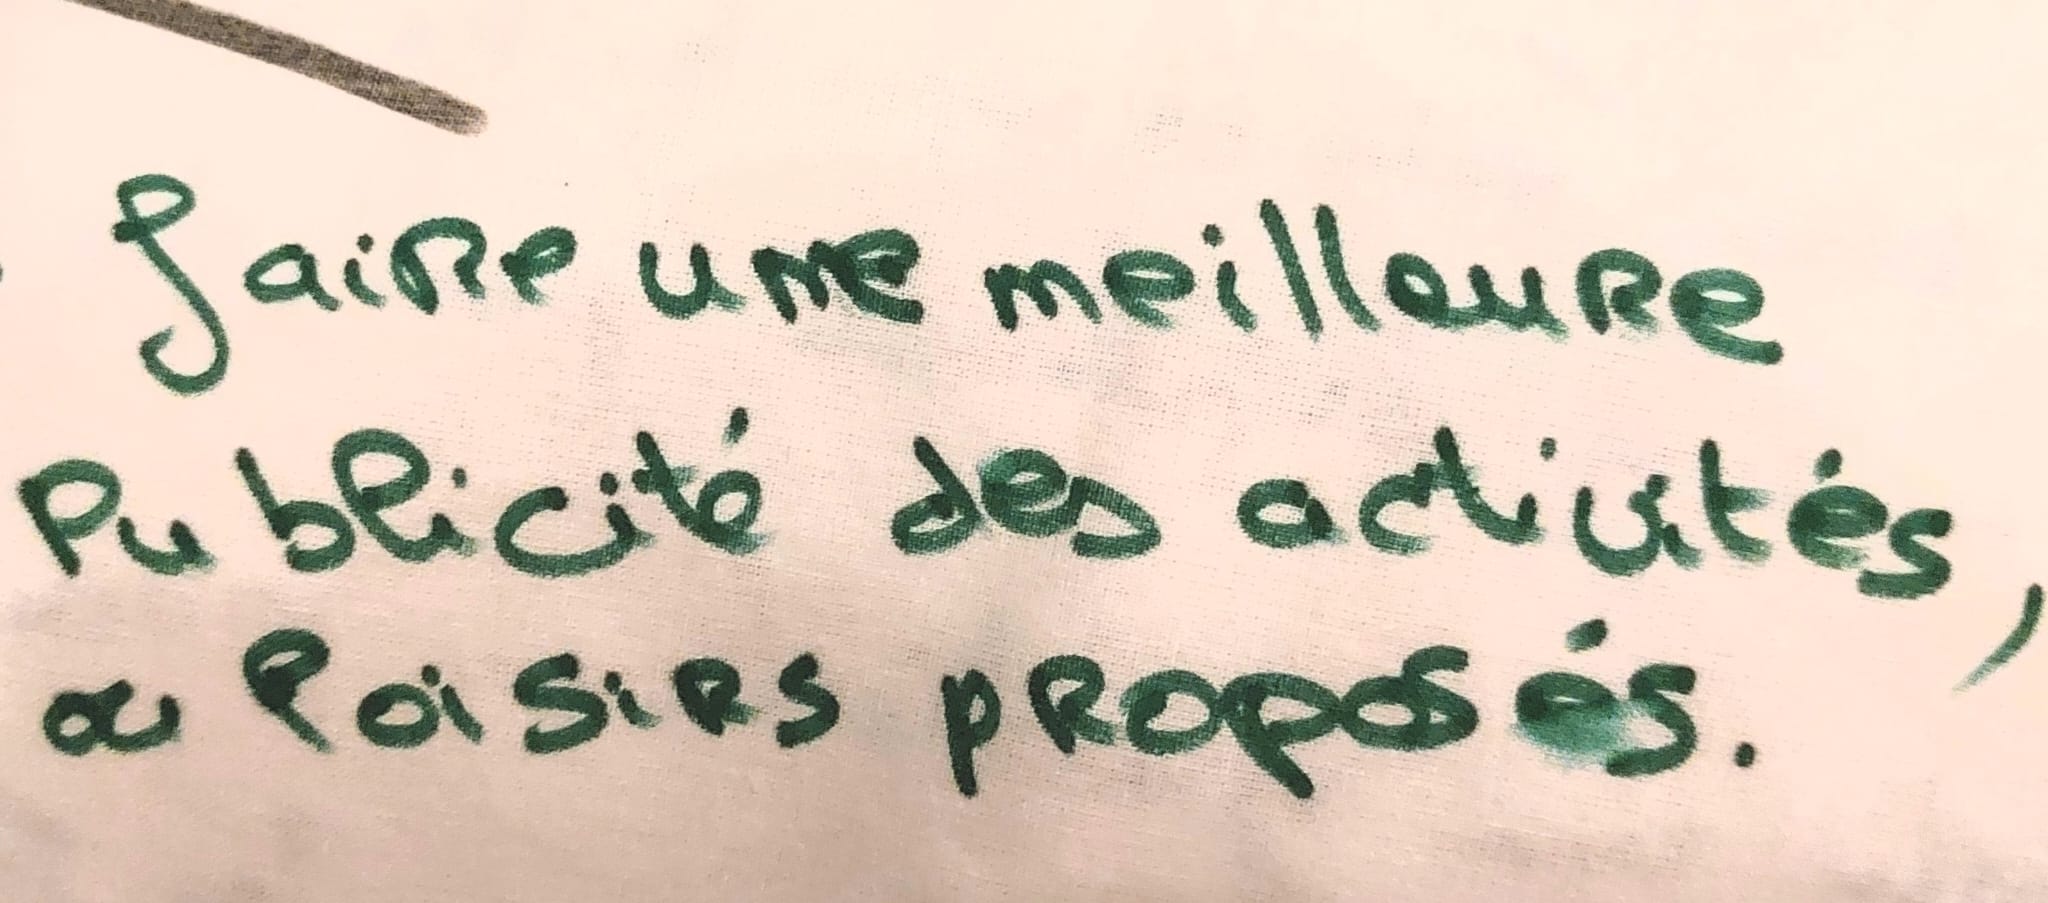 faire une meilleure
Publicité des activités,
ou loisirs proposés.